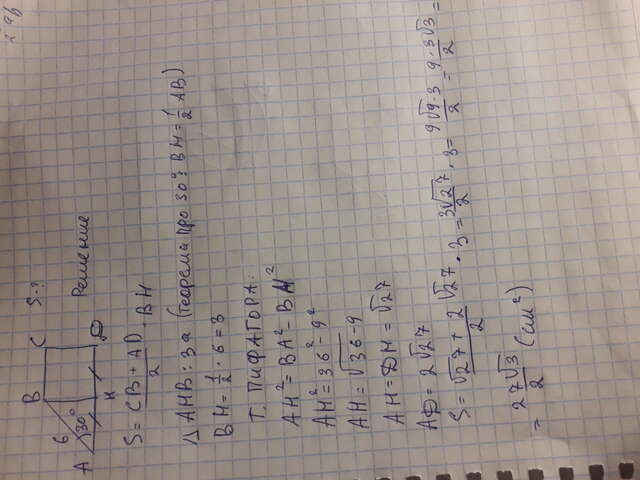 2 ab
B
C
S-?
6
A
30°
D
H
Решение
S = (CB + AD)/2 · BH
1) AHB: За (теорема про 30°: BH = 1/2 AB)
BH = 1/2 · 6 = 3
Т. ПИФАГОРА:
AH² = BA² - BH²
AH² = 36² - 9²
AH = √36-9
AH = DH = √27
AD = 2√27
S = (√27 + 2√27)/2 · 3 = 3√27/2 · 3 = 9√9·3/2 = 9·3√3/2 =
= 27√3/2 (см²)